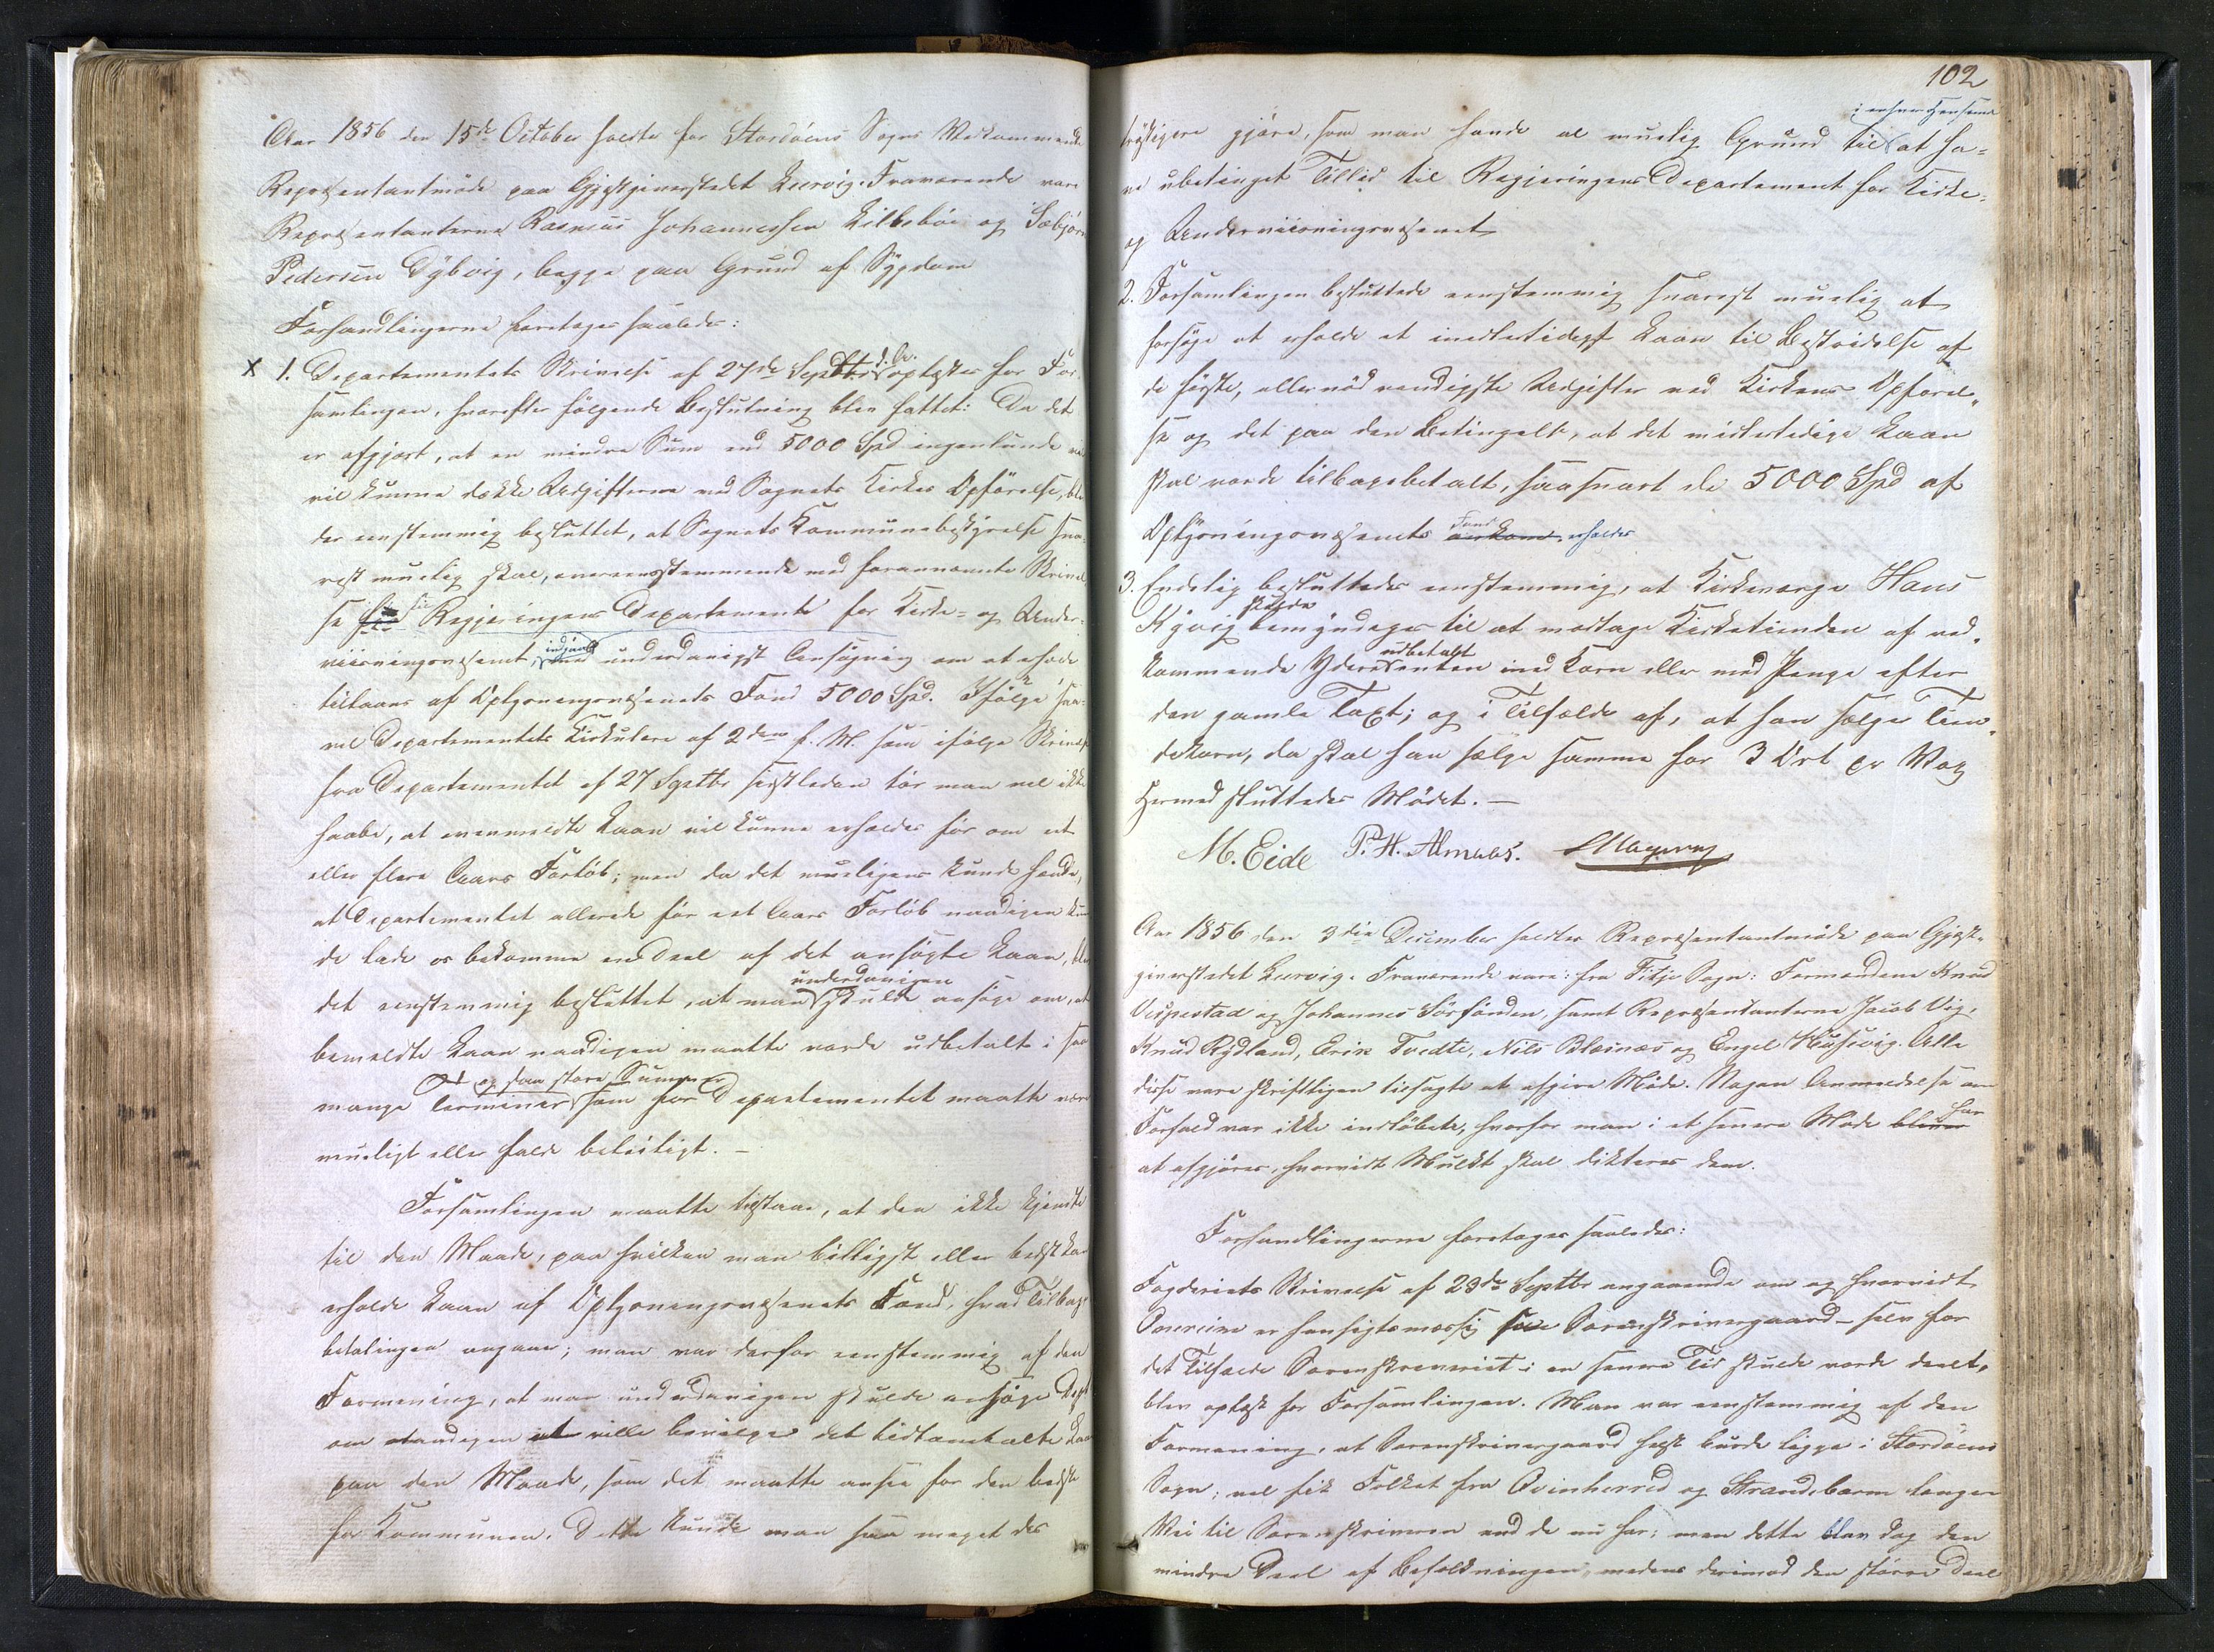 Aar 1856 den 15de October holdtes for Stordöens Sogns Vedkommende
Repræsentantmöde paa Gjæstgiverstedet Leervig. Fraværende vare
Repræsentanterne Rasmus Johannessen Lillebøe og Sæbjørn
Pedersen Dybvig, begge paa Grund af Sygdom
Forhandlingerne foretoges saaledes:
x 1. Departementets Skrivelse af 27de Septbr d. A. oplæstes for For-
samlingen, hvorefter følgende Beslutning blev fattet: Da det
er afgjort, at en mindre Sum end 5000 Spd ingenlunde
vil kunne dække Udgifterne ved Sognets Kirkes Opførelse, blev
der eenstemmig besluttet, at Sognets Kommunebestyrelse sna-
rest muelig skal, overeensstemmende med forannævnte Skrivel
se til Regjeringens Departement for Kirke- og Under-
viisningsvæsenet, indgaae med underdanigst Ansøgning om at erholde
tillaans af Oplysningsvæsenets Fond 5000 Spd. Ifølge saa-
vel Departementets Cirkulære af 2den f. M. som ifølge Skrivelse
fra Departementet af 27 Septbr sidstleden tør man vel ikke
haabe, at ovenmeldte Laan vil kunne erholdes før om et
eller flere Aars Forløb; men da det mueligens kunde hænde,
at Departementet allerede før eet Aars Forløb naadigen kun
de lade os bekomme en Deel af det ansøgte Laan, blev
det eenstemmig besluttet, at man underdanigen skulde ansøge om, at
bemeldte Laan naadigen maatte vorde udbetalt i saa
mange Terminer og saa store Summer som for Departementet maatte være
mueligt eller falde beleiligt. –
Forsamlingen maatte tilstaae, at den ikke kjendte
til den Maade, paa hvilken man billigst eller bedst kan
erholde Laan af Oplysningsvæsenets Fond, hvad Tilbage
betalingen angaaer; man var derfor eenstemmig af den
Formening, at man underdanigen skulde ansøge Dept
om naadigen at ville bevilge det tidtomtalte Laan
paa den Maade, som det maatte ansee for den bedste
for Kommunen. Dette kunde man saa meget des
102
trøstigere gjøre, som man havde al muelig Grund til i enhver Henseende at ha-
ve ubetinget Tillid til Regjeringens Departement for Kirke-
og Underviisningsvæsenet
2. Forsamlingen besluttede eenstemmig snarest muelig at
forsøge at erholde et imidlertidigt Laan til Bestridelse af
de første, allernødvendigste Udgifter ved Kirkens Opførel-
se og det paa den Betingelse, at det midlertidige Laan
skal vorde tilbagebetalt, saasnart de 5000 Spd af
Oplysningsvæsenets Fond erholdes
3. Endelig besluttedes eenstemmig, at Kirkeværge Hans
Kyvig skulde bemyndiges til at modtage Kirketienden af ved-
kommende Ydere udbetalt enten med Korn eller med Penge efter
den gamle Taxt; og i Tilfælde af, at han sælger Tien-
dekorn, da skal han sælge samme for 3 Ort pr Vog
Hermed sluttedes Mødet. –
M. Eide P. H. Almaas.
Aar 1856 den 3die December holdtes Repræsentantmøde paa Gjæst-
giverstedet Leervig. Fraværende vare: fra Fitje Sogn: Formændene Knud
Vespestad og Johannes Sörfonden, samt Repræsentanterne Jacob Vig,
Knud Rydland, Erik Tvedte, Nils Blæsnæs og Engel Huusvig. Alle
disse vare skriftligen tilsagte at afgive Møde. Nogen Anmeldelse om
Forfald var ikke indløbet, hvorfor man i et senere Møde bliver har
at afgjøre, hvorvidt Mulkt skal dikteres dem.
Forhandlingerne foretoges saaledes:
Fogderiets Skrivelse af 23de Septbr angaaende om og hvorvidt
Onereim er hensigtsmæssig som Sorenskrivergaard – selv for
det Tilfælde Sorenskriveriet i en senere Tid skulde vorde deelt,
blev oplæst for Forsamlingen. Man var eenstemmig af den
Formening, at Sorenskrivergaard helst burde ligge i Stordöens
Sogn; vel fik Folket fra Qvinherred og Strandebarm længer
Vei til Sorenskriveren end de nu har; men dette blev dog den
mindre Deel af Befolkningen, medens derimod den större Deel